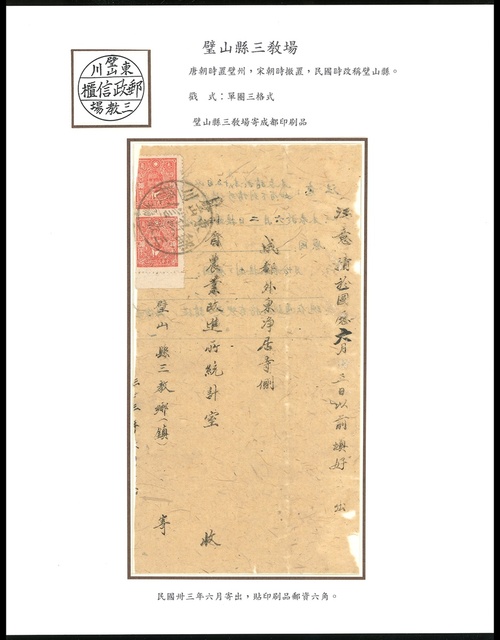 東川
璧山
郵政信櫃
三教場
璧山縣三教場
唐朝時置璧州，宋朝時撤置，民國時改稱璧山縣。
戳 式：單圈三格式
璧山縣三教場寄成都印刷品
注意請於國曆六月三日以前填好
成都外東净居寺側
省農業改進所統計室 收
璧山縣三教鄉(鎮) 寄
民國卅三年六月寄出，貼印刷品郵資六角。